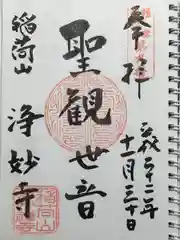 奉拝
平成二十二年
十一月三十日
聖観世音
稲荷山
浄妙寺